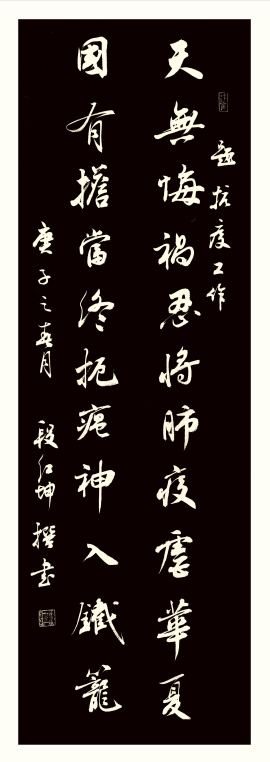 題抗疫工作
天無悔禍忍將肺疫虐華夏
國有擔當終扼疤神入鐵籠
庚子之春月 段紅坤撰書